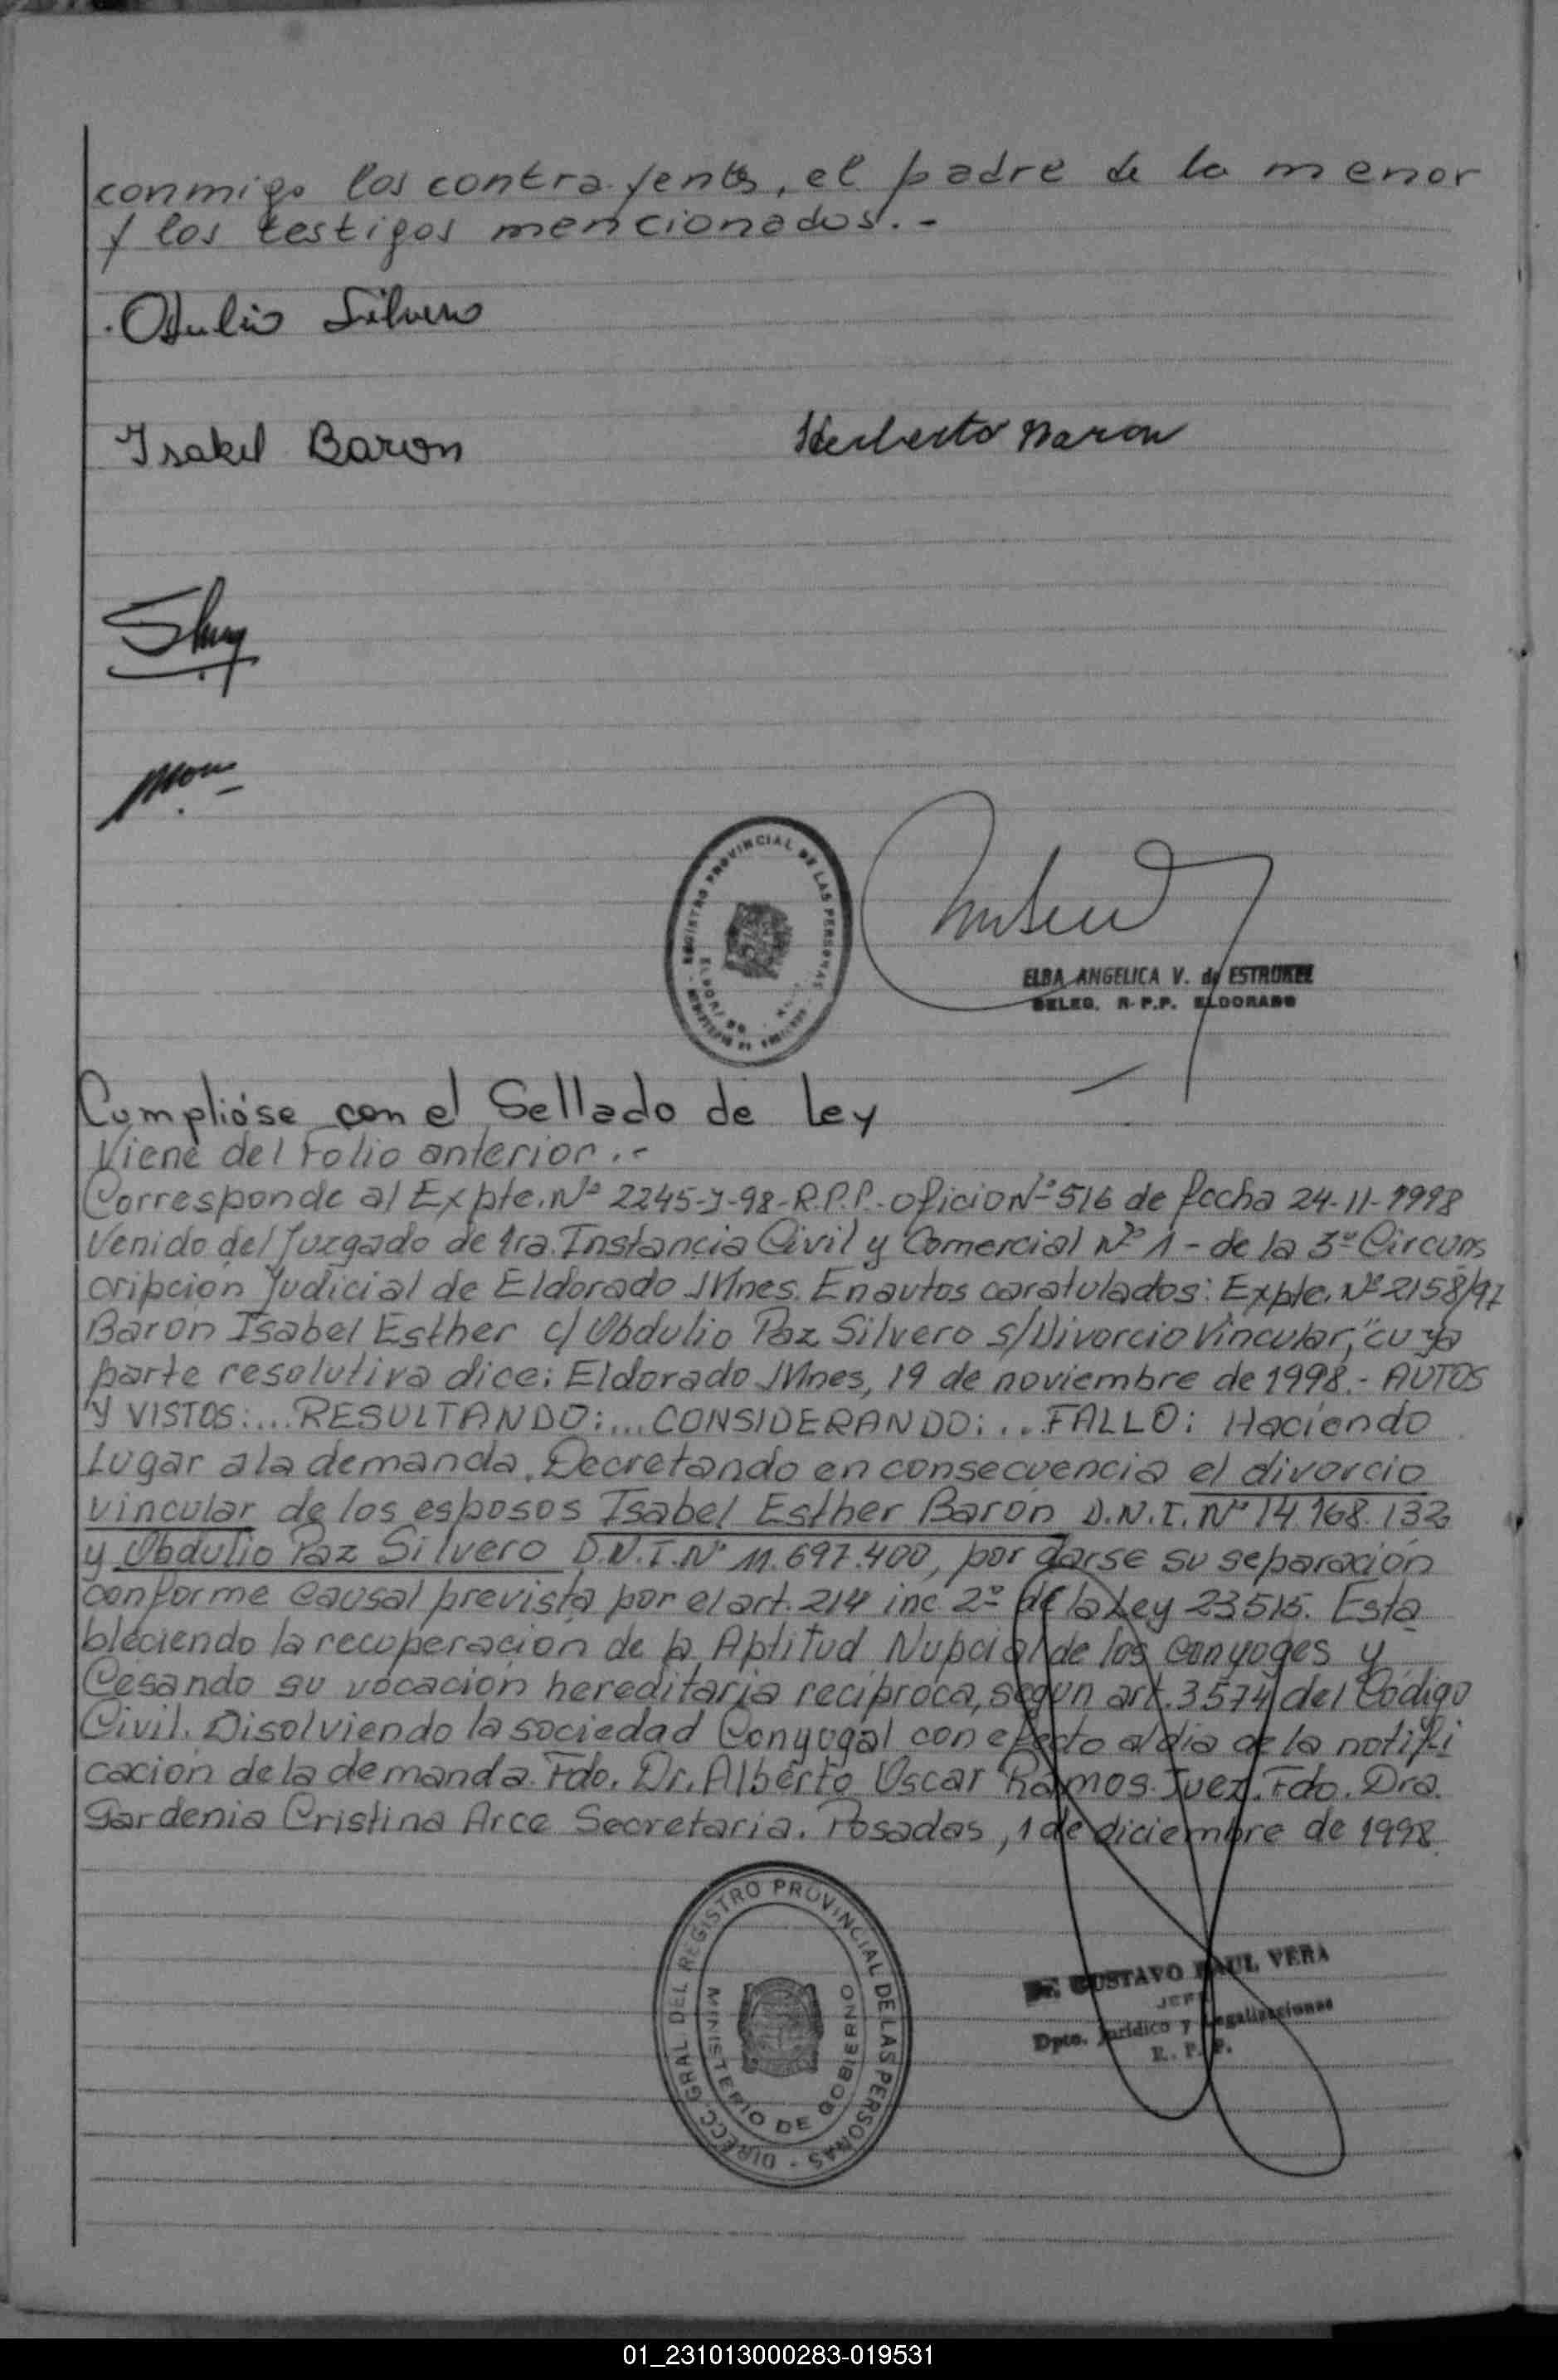 conmigo los contrayentes, el padre de la menor
y los testigos mencionados.-
Odulio Silvero
Isabel Baron
Herberto Baron
REGISTRO PROVINCIAL DE LAS PERSONAS
ELDORADO
ELBA ANGELICA V. de ESTRUKEL
DELEG. R.P.P. ELDORADO
Cumplióse con el Sellado de Ley
Viene del Folio anterior.-
Corresponde al Expte. Nº 2245-J-98-R.P.P.-oficio Nº 516 de fecha 24-11-1998
Venido del Juzgado de 1ra. Instancia Civil y Comercial Nº 1 - de la 3º Circuns
cripción Judicial de Eldorado Mnes. En autos caratulados: Expte. Nº 2158/97
Baron Isabel Esther c/ Obdulio Paz Silvero s/Divorcio Vincular," cuya
parte resolutiva dice: Eldorado Mnes, 19 de noviembre de 1998.- AUTOS
Y VISTOS:... RESULTANDO:... CONSIDERANDO:... FALLO: Haciendo
Lugar a la demanda, Decretando en consecuencia el divorcio
vincular de los esposos Isabel Esther Barón D.N.I. Nº 14.168.132
y Obdulio Paz Silvero D.N.I. Nº 11.697.400, por darse su separación
conforme causal prevista por el art. 214 inc 2º de la Ley 23515. Esta
bleciendo la recuperación de la Aptitud Nupcial de los conyoges y
Cesando su vocación hereditaria reciproca, según art. 3574 del Código
Civil. Disolviendo la sociedad Conyugal con efecto al día de la notifi
cación de la demanda. Fdo. Dr. Alberto Oscar Ramos. Juez. Fdo. Dra.
Gardenia Cristina Arce Secretaria. Posadas, 1 de diciembre de 1998
DIRECC. GRAL. DEL REGISTRO PROVINCIAL DE LAS PERSONAS -
MINISTERIO DE GOBIERNO
Dr. GUSTAVO RAUL VERA
JEFE
Dpto. Jurídico y Legalizaciones
R. P. P.
01_231013000283-019531